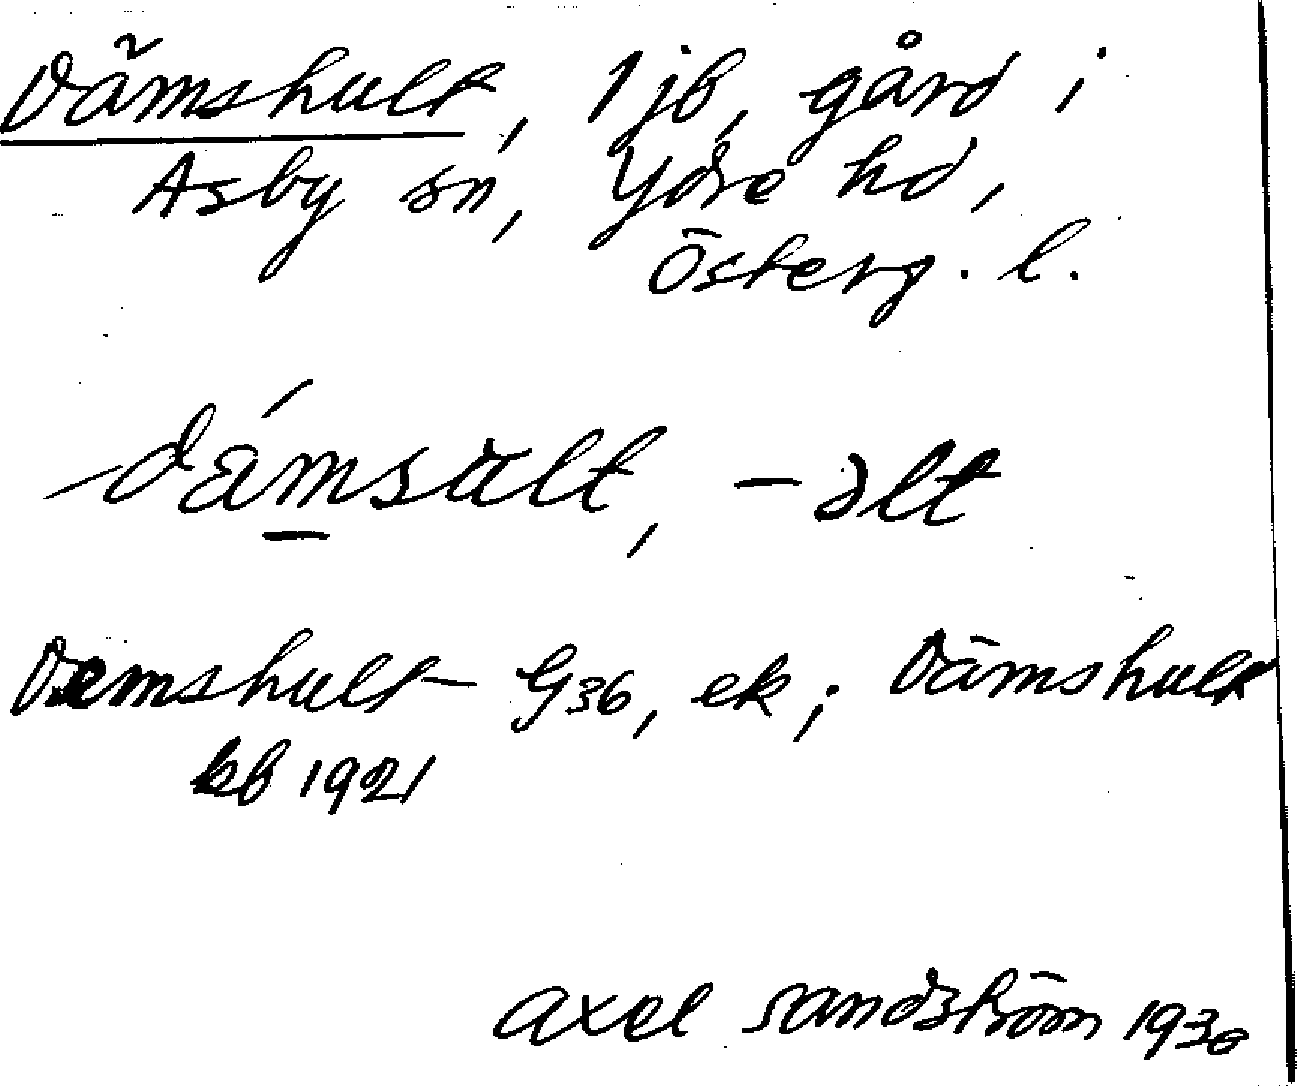 Dämshult, 1 jb, gård i
Asby sn, Ydre hd,
Österg. l.
dä́m̲sult, -ält
Demshult G36, ek; Dämshult
kb 1921
axel sandström 1930